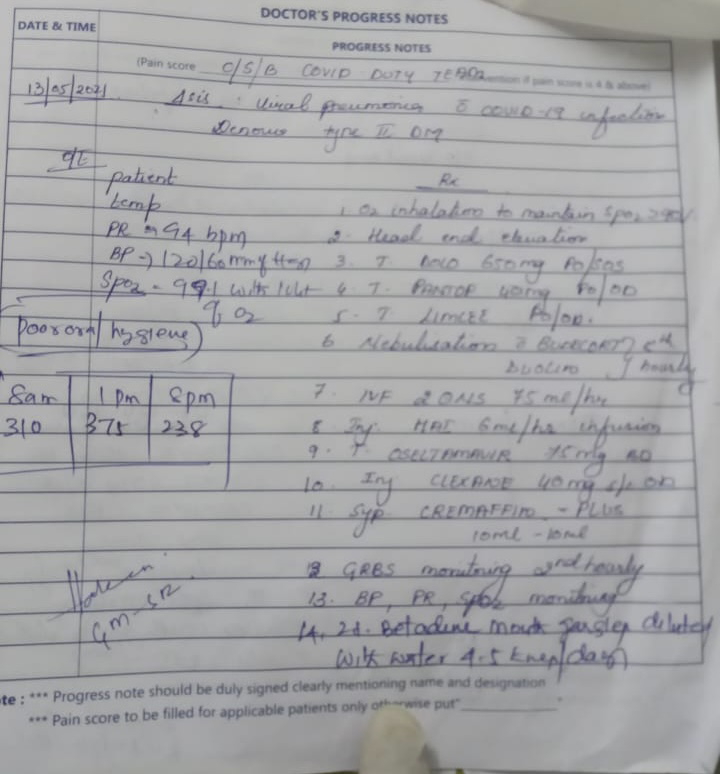 DOCTOR'S PROGRESS NOTES
DATE & TIME
PROGRESS NOTES
(Pain score mention if pain score is 4 & above)
C/S/B COVID DUTY
13/05/2021 Asis : Viral pneumonia c̄ COVID-19 infection
Denovo type II DM
O/E
patient
Rx
temp
1. O2 inhalation to maintain SpO2 >90%
PR → 94 bpm
2. Head end elevation
BP → 120/60 mmHg
3. T. DOLO 650mg PO/SOS
SpO2 - 99% with
4. T. PANTOP 40mg PO/OD
O2
5. T LIMCEE PO/OD.
Poor oral hygiene
6 Nebulisation c̄ BUDECORT
DUOLIN hourly
8am 1pm 8pm
310 375 238
7. IVF 75 ml/hr
8 Inj HAI 6ml/hr infusion
9. T. 75mg BD
10. Inj CLEXANE 40mg s/c OD
11 Syp. CREMAFFIN - PLUS
10ml - 10ml
GRBS monitoring 2nd hourly
13. BP, PR, SpO2 monitoring
GM-SR
14. Betadine mouth gargles diluted
with water 4-5 /day
te : *** Progress note should be duly signed clearly mentioning name and designation
*** Pain score to be filled for applicable patients only otherwise put"